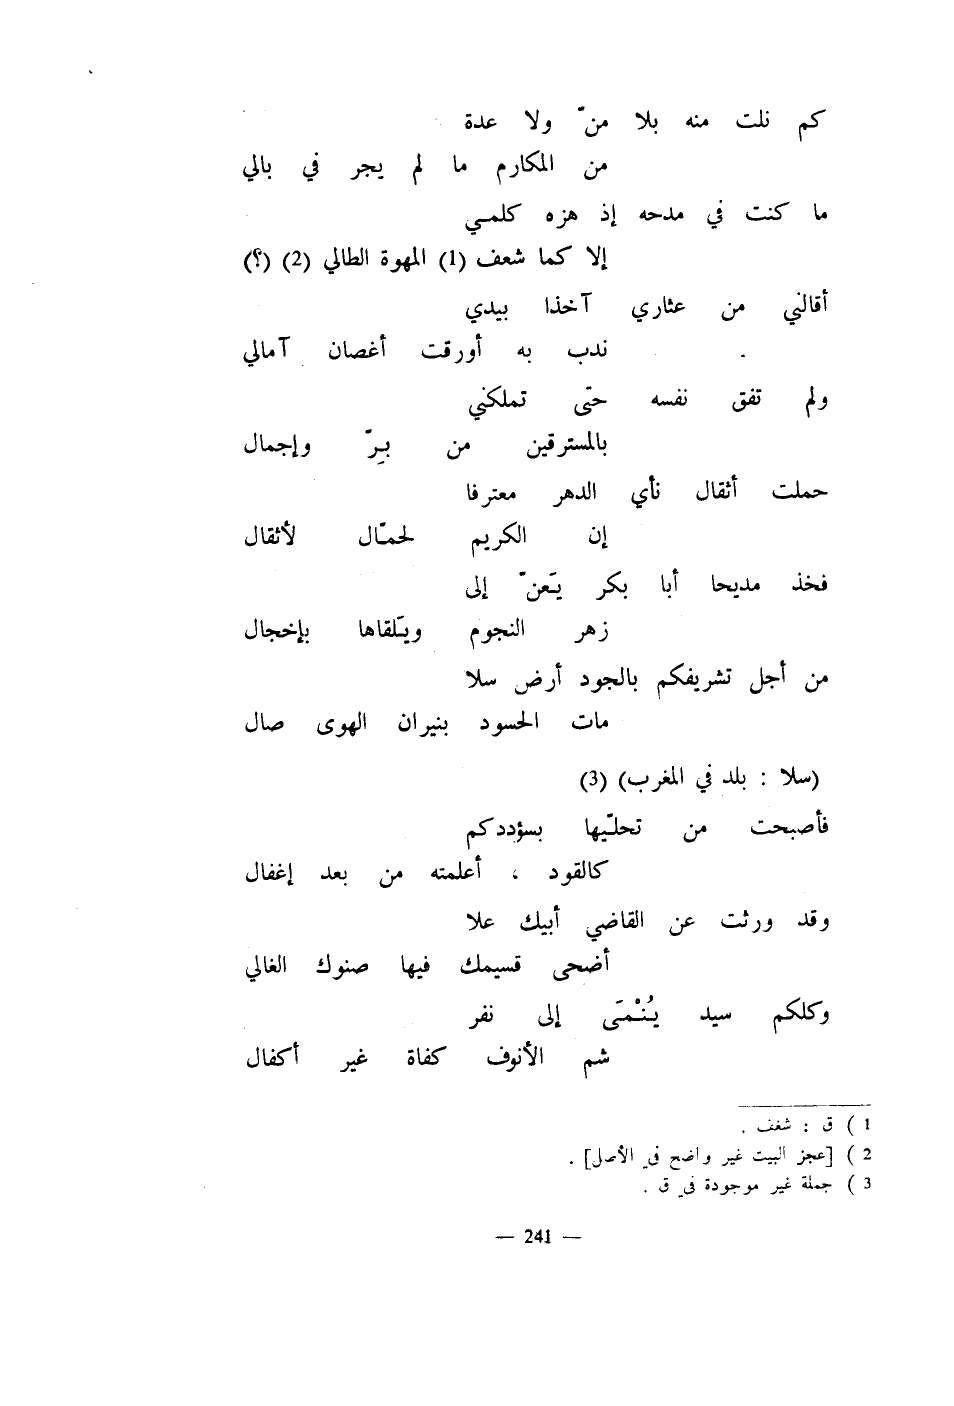 كم نلت منه بلا منّ ولا عدة
من المكارم ما لم يجر في بالي
ما كنت في مدحه إذ هزه كلمي
إلا كما شعف (1) المهوة الطالي (2) (؟)
أقالني من عثاري آخذا بيدي
ندب به أورقت أغصان آمالي
ولم تفق نفسه حتى تملكني
بالمسترقين من بِرّ وإجمال
حملت أثقال نأي الدهر معترفا
إن الكريم لحمّال لأثقال
فخذ مديحا أبا بكر يَعنّ إلى
زهر النجوم ويَلقاها بإخجال
من أجل تشريفكم بالجود أرض سلا
مات الحسود بنيران الهوى صال
(سلا : بلد في المغرب) (3)
فأصبحت من تحلّيها بسؤددكم
كالقود ، أعلمته من بعد إغفال
وقد ورثت عن القاضي أبيك علا
أضحى قسيمك فيها صنوك الغالي
وكلكم سيد يُنْمَى إلى نفر
شم الأنوف كفاة غير أكفال
1 ) ق : شغف .
2 ) [عجز البيت غير واضح في الأصل] .
3 ) جملة غير موجودة في ق .
— 241 —